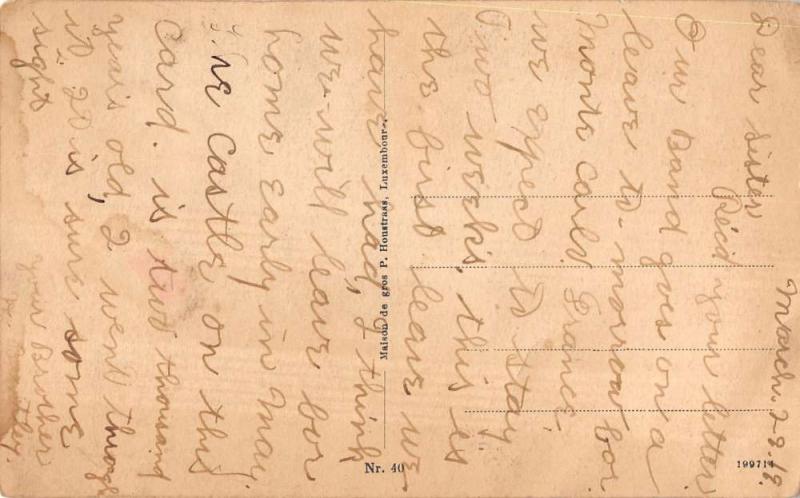 March. 2-9.19.
Dear Sister
Rec'd your letter
Our Band goes on a
leave to-morrow for
Monte Carlo France
we expect to stay
Two weeks, this is
the first leave we-
have had, I think
we-will leave for
home early in May.
The Castle on this
Card. is two thousand
years old, I went through
it. It is sure some
sight
your Brother
Maison de gros P. Houstrass, Luxembourg.
Nr. 40
199714